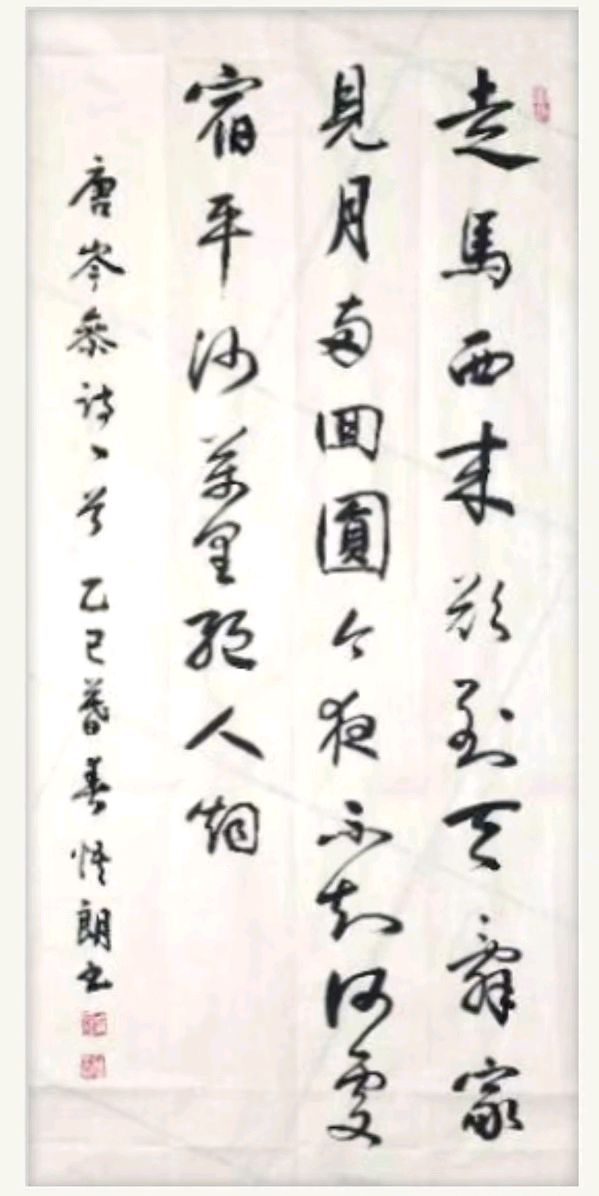 走馬西来欲到天辭家
見月兩回圓今夜不知何處
宿平沙萬里絕人烟
唐岑參詩一首乙巳暮春悟朗書